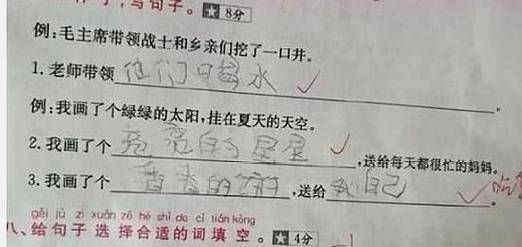 写句子。★8分
例:毛主席带领战士和乡亲们挖了一口井。
1.老师带领他们喝水。
例:我画了个绿绿的太阳,挂在夏天的天空。
2.我画了个亮亮的星星,送给每天都很忙的妈妈。
3.我画了个香香的饼,送给我自己。
gěi jù zi xuǎn zé hé shì de cí tián kòng
八、给句子选择合适的词填空。★4分